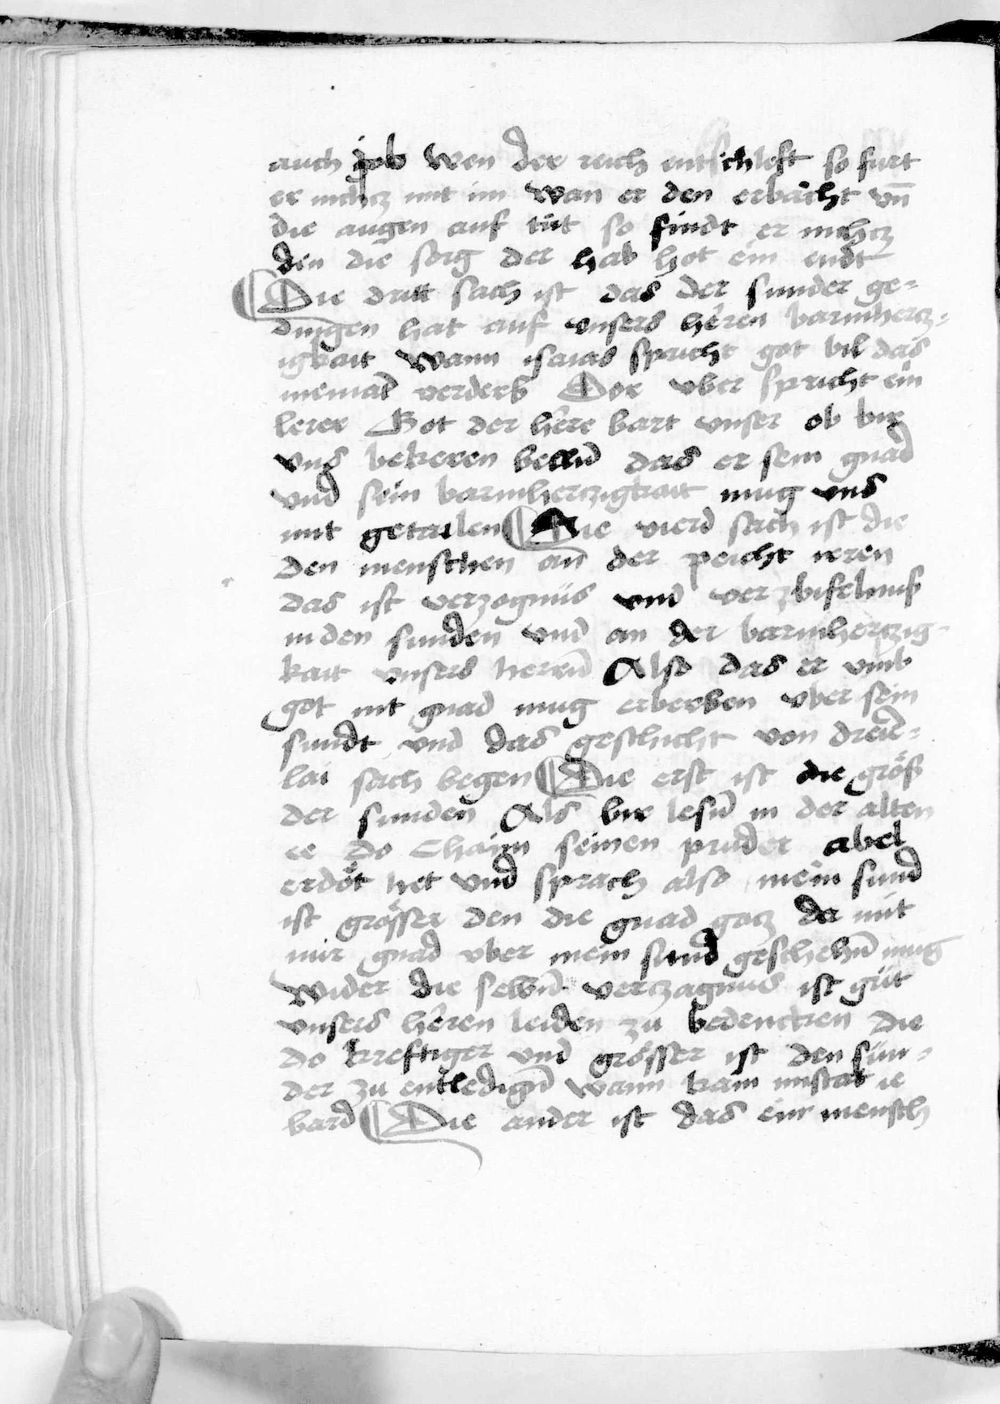 auch job wen der reich entschleft so furt
er nichcz mit im wan er den erbacht vn̄
die augen auf tüt so findt er nichcz
den die sorg der hab hot ein endt
Die dritt sach ist das der sunder ge-
dingen hat auf vnsers heren barmhercz-
igkait wann isaias spricht got bil das
niemat verderb Dor vber spricht ein
lerer Got der here bart vnser ob bir
vns bekeren belln̄ das er sein gnad
vnd sein barmherczigkait mug vns
mit getailen Die vierd sach ist die
den menschen an der peicht irren
das ist verzognüs vnd verzbifelnuß
in den sunden vnd an der barmherczig-
kait vnsers herrn̄ Also das er vmb
got nit gnad mug erberben vber sein
sundt vnd das geschicht von dreier-
lai sach begen Die erst ist die größ
der sunden Als bir lesn̄ in der alten
ee do Chaim seinen pruder abel
erdöt het vnd sprach also mein sund
ist grösser den die gnad gocz der mit
mir gnad vber mein sund geschehn̄ mug
Wider die selbn̄ verczagnus ist güt
vnsers heren leiden zü bedencken die
do kreftiger vnd grösser ist den sün-
der zu entledign̄ wann kain mistat ie
bard Die ander ist das ein mensch